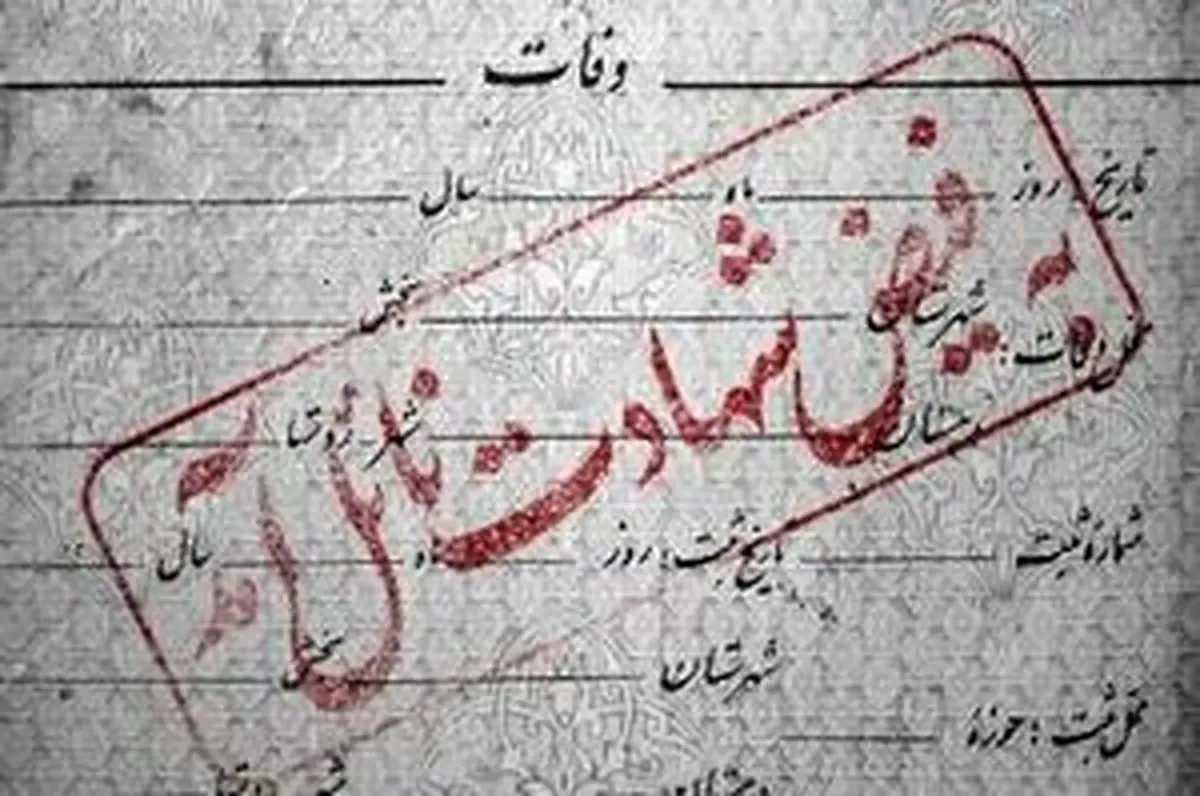 وفات
تاریخ روز ماه سال
محل وفات: شهرستان بخش
دهستان شهر روستا
شماره ثبت تاریخ ثبت: روز ماه سال
محل ثبت: حوزه شهرستان بخش
به فیض شهادت نائل آمد